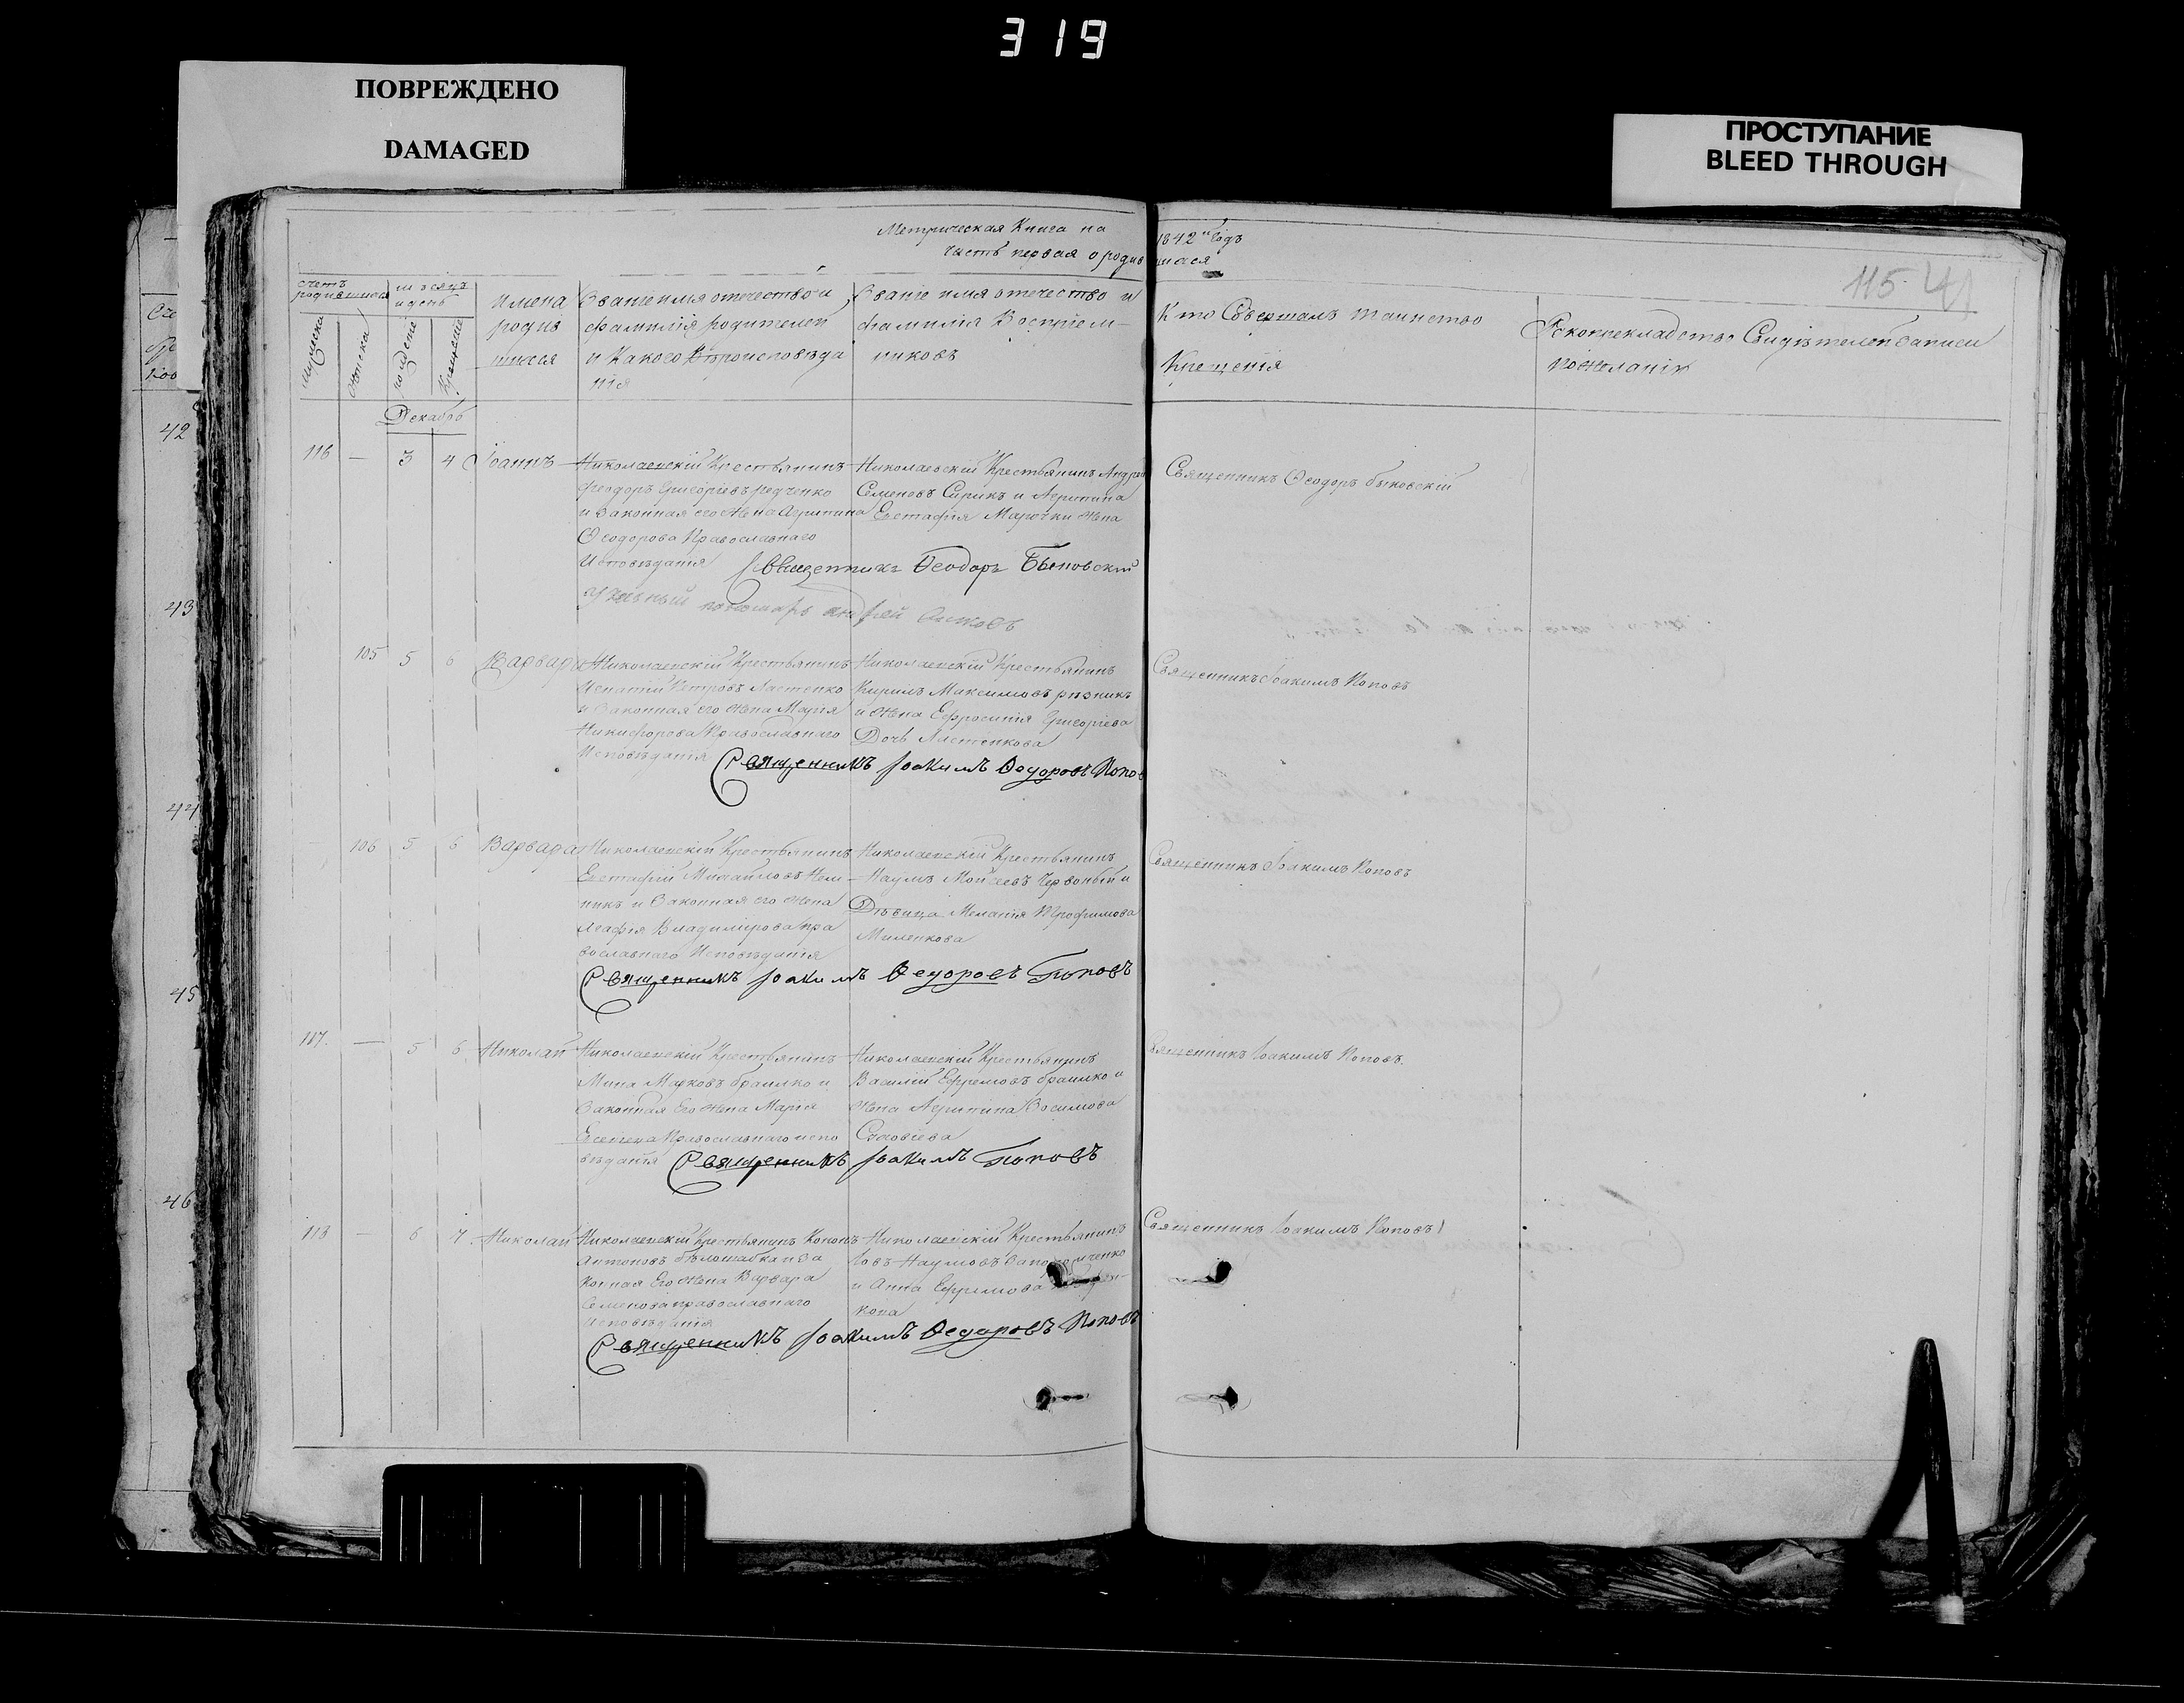 319
ПОВРЕЖДЕНО
DAMAGED
ПРОСТУПАНИЕ
BLEED THROUGH
Метрическая Книга на 1842й Годъ
Часть первая о родившихся
115
41
счетъ родившихся
мужеска
женска
мѣсяцъ и день
рожденіе
крещеніе
имена
родив
шихся
Званіе имя отечество и
фамилія родителей
и Какого Вѣроисповѣда
нія
Званіе имя отечество и
фамилія Воспріем-
никовъ
Кто Совершалъ таинство
Крещенія
Рукоприкладство Свидѣтелей записи
по желанію
Декабрь
42
43
44
45
46
116 — 3 4 Іоаннъ
Николаевскій Крестьянинъ
Феодоръ Григоріевъ редченко
и Законная его Жена Агрипина
Ѳеодорова Православнаго
Исповѣданія
Николаевскій Крестьянинъ Андрей
Семеновъ Сирикъ и Агрипина
Евстафія Марочки жена
Священникъ Ѳеодоръ Быковскій
Священникъ Ѳеодоръ Быковскій
105 5 6 Варвара
Николаевскій Крестьянинъ
Игнатій Петровъ Ластенко
и Законная его жена Марія
Никифорова Православнаго
Исповѣданія
Николаевскій Крестьянинъ
Кирилъ Максимовъ рѣзникъ
и Жена Ефросинія Григоріева
Дочь Ластенкова
Священникъ Іоакимъ Поповъ
Священникъ Іоакимъ Ѳедоровъ Попов
106 5 6 Варвара
Николаевскій Крестьянинъ
Евстафій Михайловъ
никъ и Законная его жена
Агафія Владимірова пра
вославнаго Исповѣданія
Николаевскій Крестьянинъ
Наумъ Мойсеевъ Червоный и
Дѣвица Меланія Трофимова
Миленкова
Священникъ Іоакимъ Поповъ
Священникъ Іоакимъ Ѳедоровъ Поповъ
117. — 5 6. Николай
Николаевскій Крестьянинъ
Мина Марковъ браилко и
Законная Его жена Марія
Православнаго испо
вѣданія
Николаевскій Крестьянинъ
Василій Ефремовъ браилко и
Жена Агрипина
Священникъ Іоакимъ Поповъ.
Священникъ Іоакимъ Поповъ
118 — 6 7. Николай
Николаевскій Крестьянинъ Кононъ
Антоновъ бѣлошабка и За
конная Его жена Варвара
Семенова православнаго
Исповѣданія
Николаевскій Крестьянинъ
Іовъ Наумовъ
и Анна Ефремова
кова
Священникъ Іоакимъ Поповъ
Священникъ Іоакимъ Ѳедоровъ Поповъ